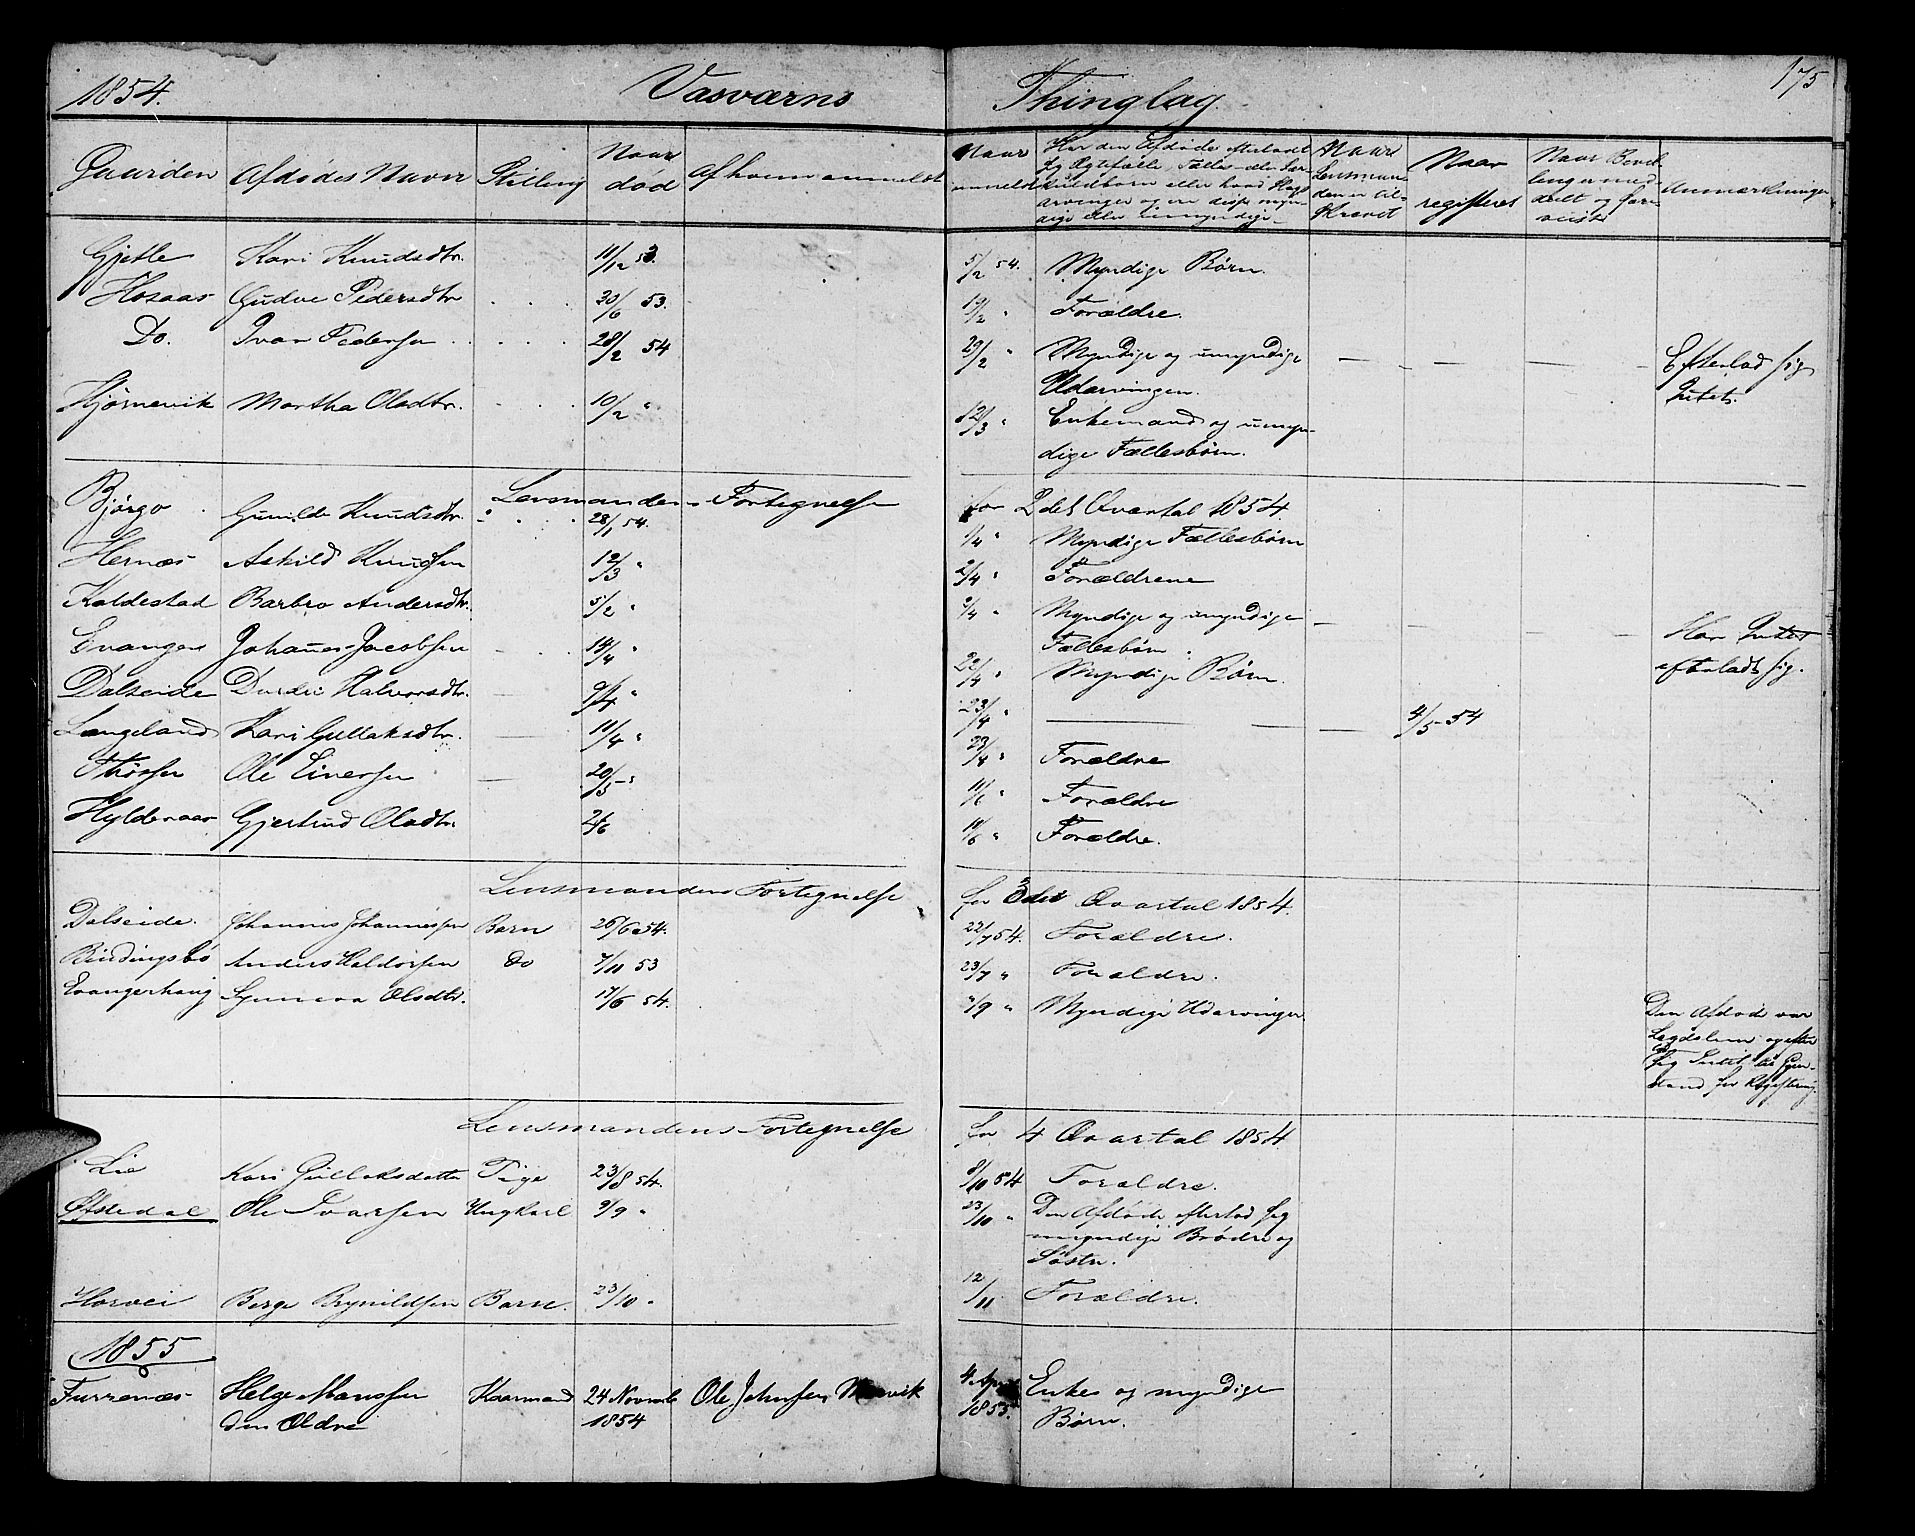 1854.
Vasværns Thinglag.
175
Gaarden Afdødes Navn Stilling Naar død Af hvem anmeldt
Naar anmeldt
Har den Afdøde efterladt
sig Ægtefælle, Fælles- eller Sær-
kuldbørn eller hvad Slags
arvinger og ere disse myn-
dige eller umyndige
Naar
Lensman-
den er til-
skrevet
Naar
registeret
Anmærkninger
Gjetle Kari Knudsdtr. 11/12 53. 5/2 54. Myndige Børn.
Hosaas Gudve Pedersdtr 30/6 53. 19/2 " Forældre.
Do. Ivar Pedersen 28/2 54 29/2 " Myndige og umyndige
Udarvingen.
Efterlod sig
Intet.
Hjørnevik Martha Olsdtr. 10/2 " 12/3 " Enkemand og umyn-
dige Fællesbørn.
Lensmandens Fortegnelse for 2det Qvartal 1854.
Bjørgo Gunilde Knudsdtr. 28/1 54. 1/4 " Myndige Fællesbørn
Hernæs Askild Knudsen 12/3 " 2/4 " Forældrene
Kaldestad Barbro Andersdtr. 5/2 " 2/4 " Myndige og umyndige
Fællesbørn.
Har Intet
efterladt sig.
Evanger Johannes Jacobsen 14/4 " 22/4 " Myndige Børn.
Dalseide Durdri Halvorsdtr. 9/4 " 23/4 " 4/5 - 54
Langeland Kari Gullaksdtr. 11/4 " 23/4 " Forældre
Ole Einersen 20/5 " 11/6 " Forældre
Hyldenaar Gjertrud Olsdtr. 2/6 11/6 " Forældre.
Lensmandens Fortegnelse for 3die Qvartal 1854.
Dalseide Johannis Johannessen Barn 26/6 54. 22/7 54. Forældre.
Birdingsbø Anders Haldorsen do 7/11 53 23/7 " Forældre.
Evangerhaug Synneva Olsdtr. 17/6 54. 2/9 " Myndige Udarvinger.
Den Afdøde var
Legdslem og efter
lod sig Intet til Gjen-
stand for Registering
Lensmandens Fortegnelse for 4 Qvartal 1854
Lie Kari Gullaksdatter Pige 23/8 54. 8/10 54 Forældre.
Øfstedal Ole Ivarsen Ungkarl 9/9 " 23/10 " Den Afdøde efterlod sig
myndige Brødre og
Søstre.
Horvei Berge Brynildsen Barn. 23/10 " 12/11 Forældre.
1855
Furrenæs Helge Monssen Kaarmand 24 Novmb Ole Johnsen Mævik 4 April Enke og myndige
den Ældre 1854 1855. Børn.